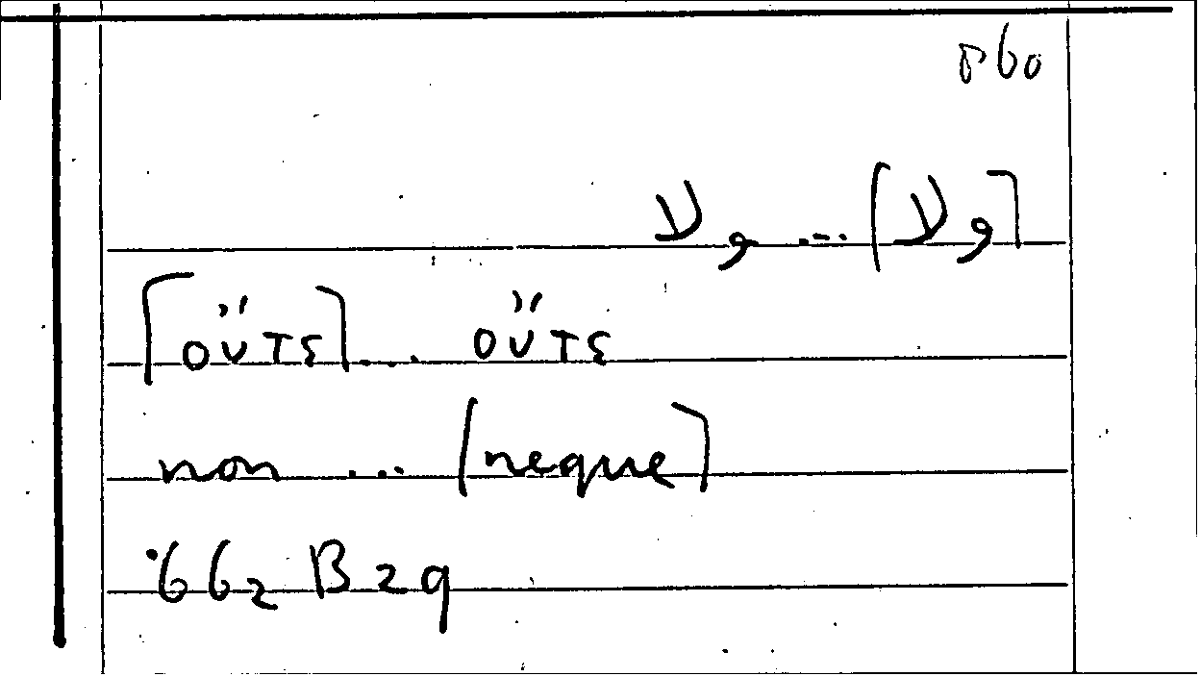 [ولا] ... ولا
[οὔτε] ... οὔτε
non ... [neque]
662 B 29